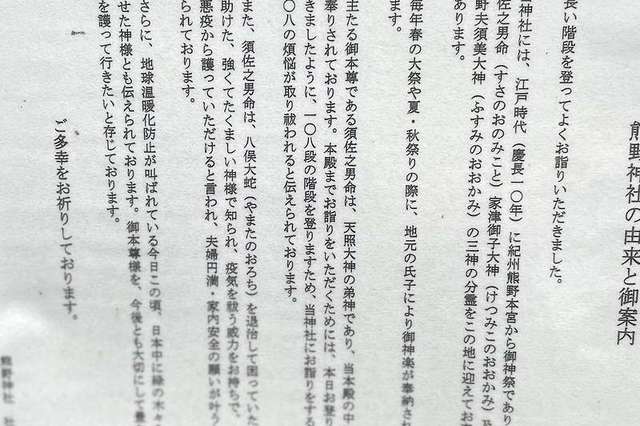 熊野神社の由来と御案内
長い階段を登ってよくお詣りいただきました。
神社には、江戸時代（慶長一〇年）に紀州熊野本宮から御神祭であり
佐之男命（すさのおのみこと）家津御子大神（けつみこのおおかみ）及
野夫須美大神（ふすみのおおかみ）の三神の分霊をこの地に迎えてお
あります。
毎年春の大祭や夏・秋祭りの際に、地元の氏子により御神楽が奉納され
ます。
主たる御本尊である須佐之男命は、天照大神の弟神であり、当本殿の中
奉りされております。本殿までお詣りをいただくためには、本日お登り
きましたように、一〇八段の階段を登りますため、当神社にお詣りをする
〇八の煩悩が取り祓われると伝えられております。
また、須佐之男命は、八俣大蛇（やまたのおろち）を退治して困っていた
助けた、強くてたくましい神様で知られ、疫気を祓う威力をお持ちで、
悪疫から護っていただけると言われ、夫婦円満・家内安全の願いが叶う
られております。
さらに、地球温暖化防止が叫ばれている今日この頃、日本中に緑の木々
せた神様とも伝えられております。御本尊様を、今後とも大切にして
を護って行きたいと存じております。
ご多幸をお祈りしております。
熊野神社